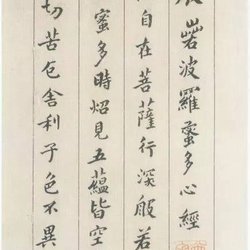 若波羅蜜多心經
自在菩薩行深般若
蜜多時炤見五蘊皆空
切苦厄舍利子色不異